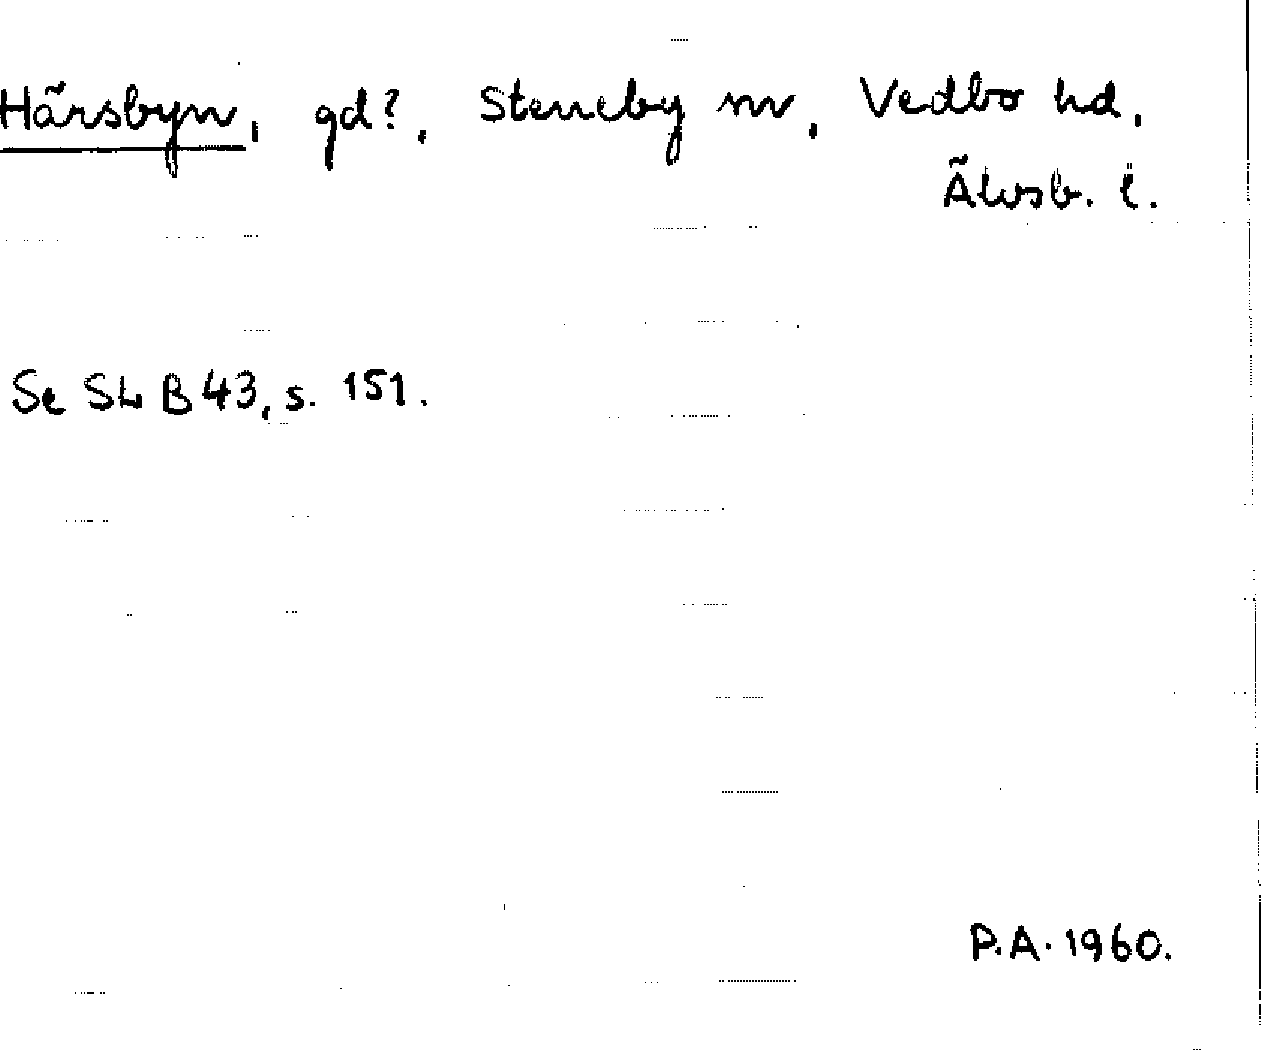 Härsbyn, gd?, Steneby sn, Vedbo hd,
Älvsb. l.
Se SL B 43, s. 151.
P.A. 1960.